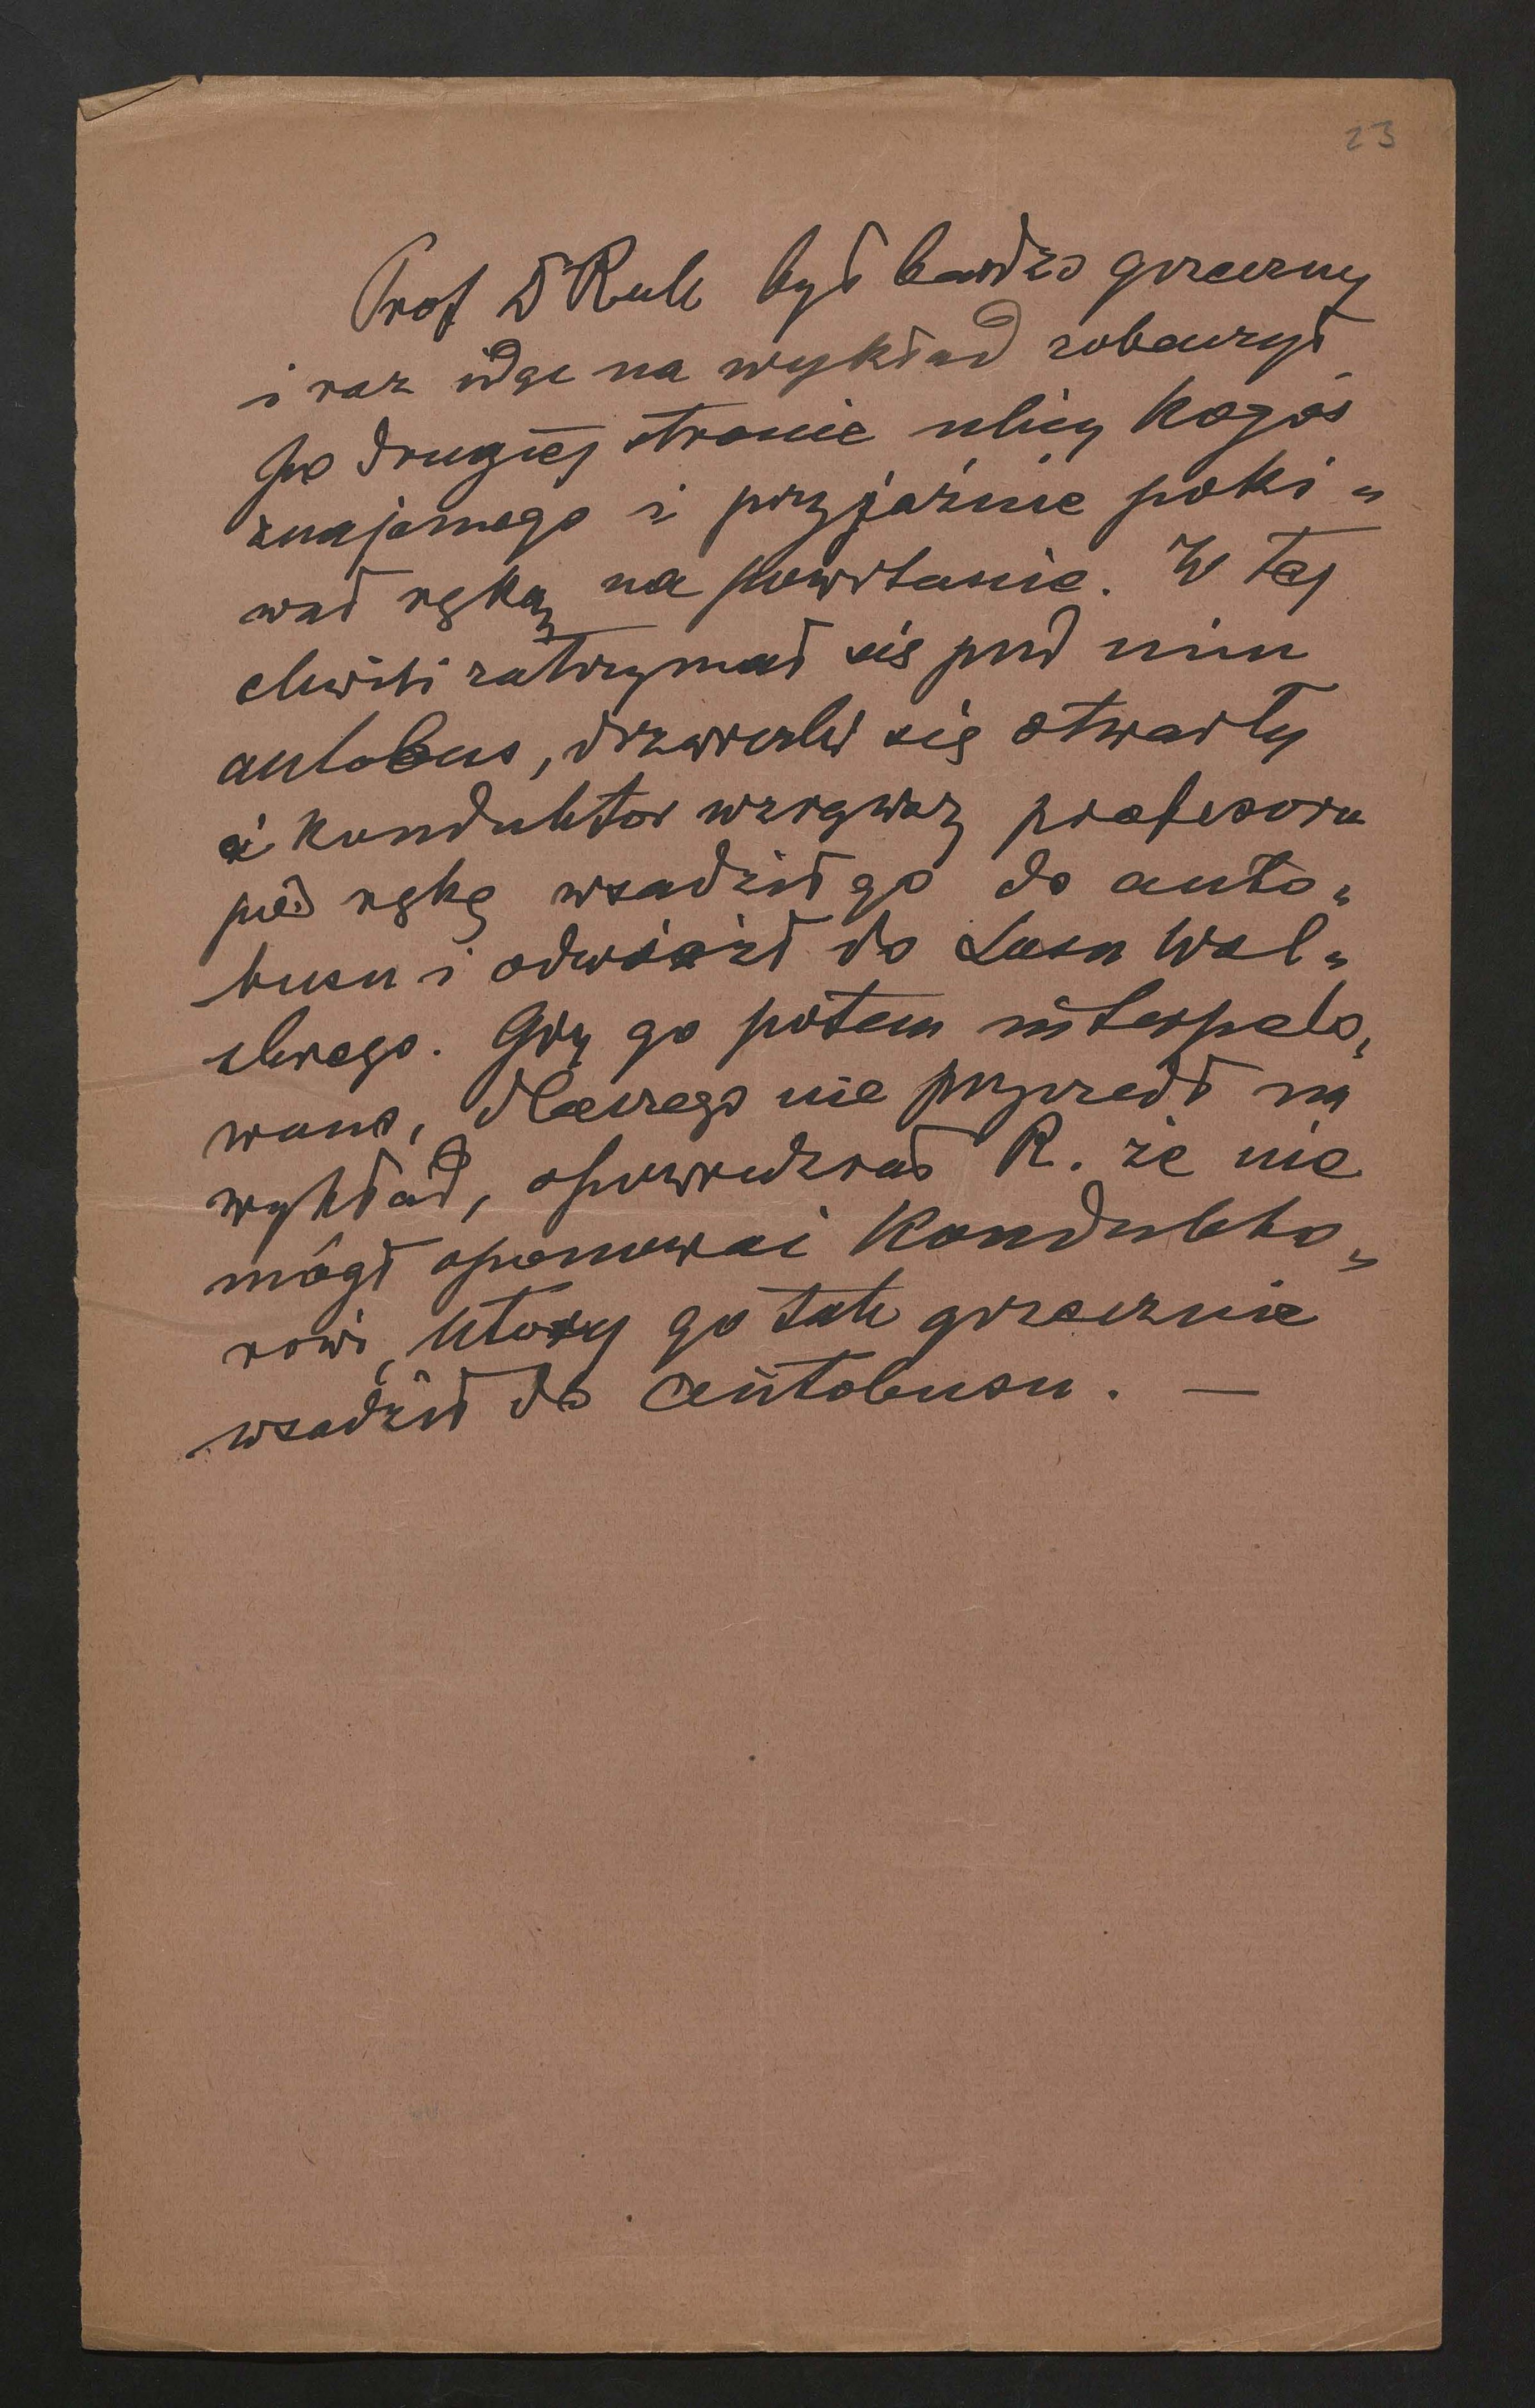 23
Prof Dr Ruk był bardzo grzeczny
i raz idąc na wykład zobaczył
po drugiej stronie ulicy kogoś
znajomego i przyjaźnie poki„
wał ręką na powitanie. W tej
chwili zatrzymał się pod nim
autobus, drzwiczki się otwarły
i konduktor wziąwszy profesora
pod rękę wsadził go do auto„
busu i odwiózł do Lasu Wol„
skiego. Gdy go potem interpelo„
wano, dlaczego nie przyszedł na
wykład, opowiedział R. że nie
mógł oponować kondukto„
rowi, który go tak grzecznie
wsadził do autobusu. —